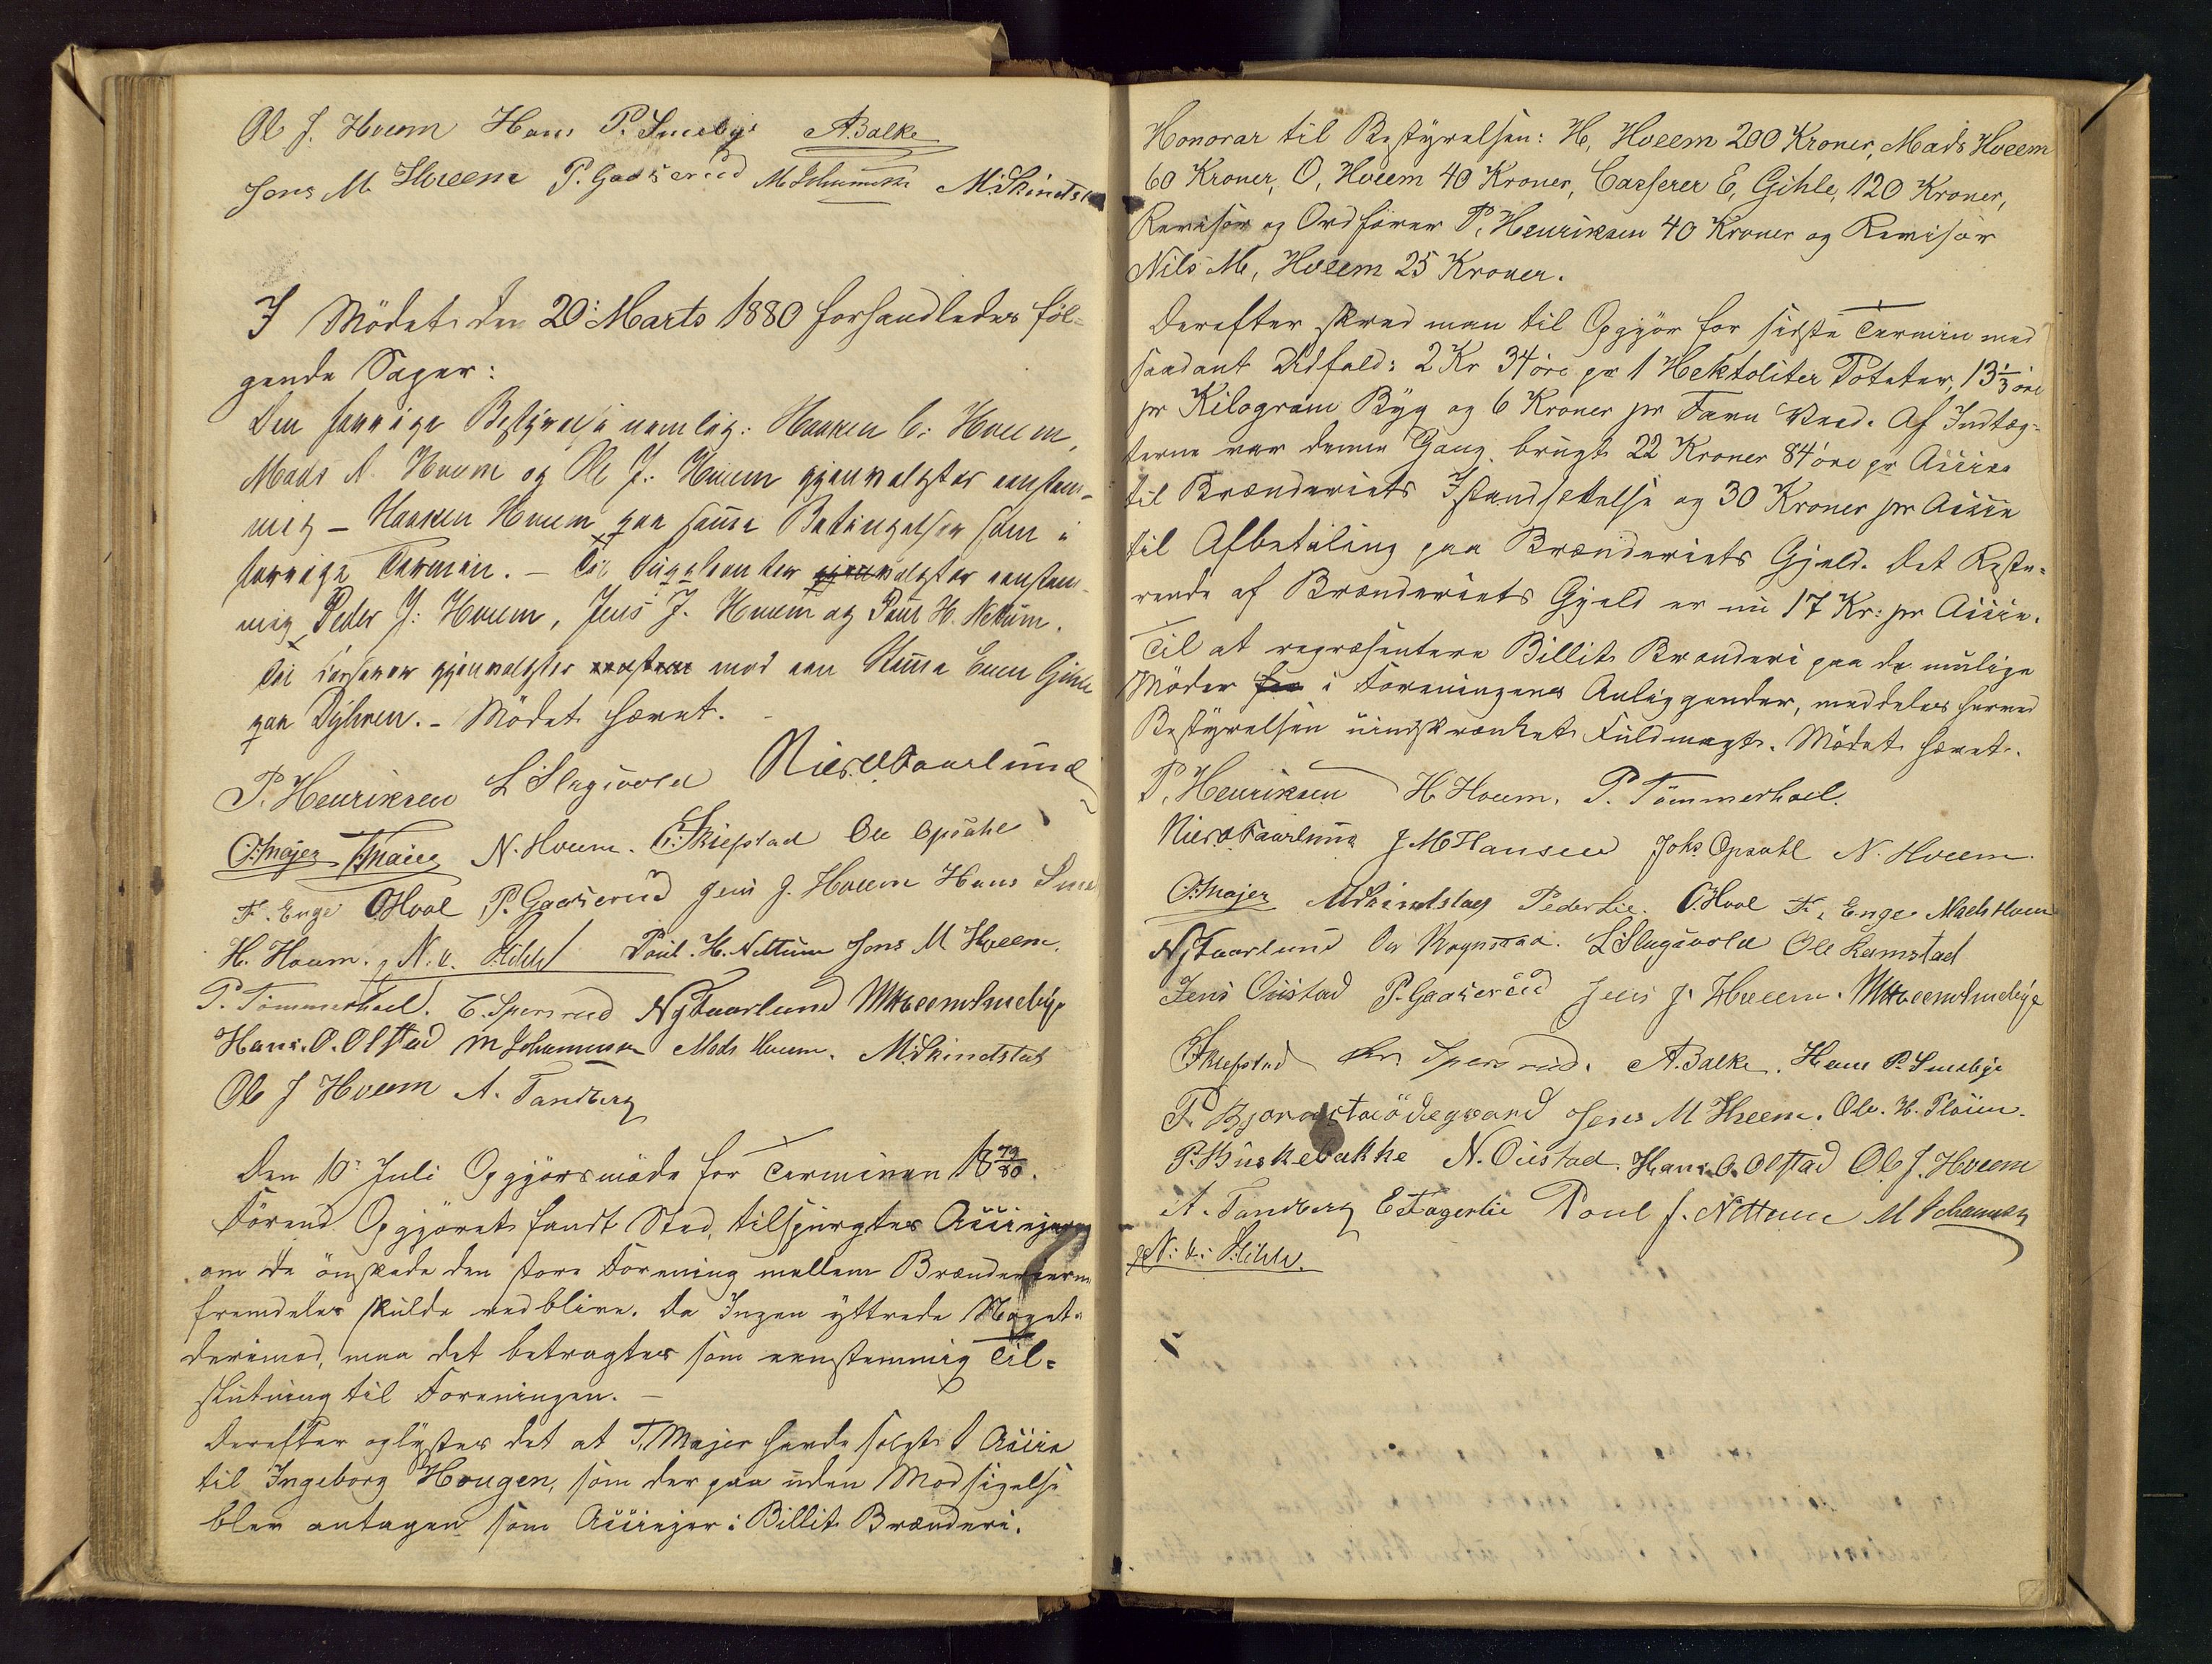 Ole J. Hveem Hans P. Smebye A Balke
Jens M Hveem P. Gaaserud M Johannessen M. Skindst
I Mödet den 20: Marts 1880 forhandledes föl-
gende Sager:
Den forrige Bestyrelse nemlig: Haaken C: Hveem,
Mads N. Hveem og Ole J. Hveem gjenvalgtes eenstem-
mig – Haaken Hveem paa samme Betingelser som i
forrige Termin. – Til Suppleanter valgtes eenstem-
mig Peder J: Hveem, Jens J. Hveem og Poul H. Nettum.
Til Casserer gjenvalgtes mod een Stemme Even Gihle
paa Dyhren. – Mödet hævet. –
P. Henriksen L Slagsvold Niels O Faarlund
O. Majer T Majer N. Hveem. C. Skiepstad Ole Opsahl
F. Enge O. Hoel P. Gaaserud Jens J. Hveem Hans Sme
H. Hveem. N. C. Poul. H. Nettum Jens M Hveem.
P. Tömmerhoel. C. Spersrud N J Faarlund M Hveem Smebye
Hans. O. Olstad M Johannessen Mads Hveem. M. Skindstad
Ole J Hveem A. Tandberg
Den 10: Juli Opgjörsmöde for Terminen 18 79/80.
Förend Opgjöret fandt Sted, tilspurgtes Actieejerne
om de önskede den store Forening mellem Brænderierne
fremdeles skulde vedblive. Da Ingen yttrede Noget
derimod, maa det betragtes som eenstemmig Til-
slutning til Foreningen. –
Derefter oplystes det at T. Majer havde solgt 1 Actie
til Ingeborg Hougen, som derpaa uden Modsigelse
blev antagen som Actieejer i Billit Brænderi.
Honorar til Bestyrelsen: H, Hveem 200 Kroner, Mads Hveem
60 Kroner, O, Hveem 40 Kroner, Casserer E, Gihle, 120 Kroner,
Revisor og Ordförer P, Henriksen 40 Kroner og Revisor
Nils M, Hveem 25 Kroner.
Derefter skred man til Opgjör for sidste Termin med
saadant Udfald: 2 Kr 34 öre pr 1 Hektoliter Poteter, 13 1/3 öre
pr Kilogram Byg og 6 Kroner pr Favn Veed. Af Indtæg-
terne var denne Gang brugt 22 Kroner 84 öre pr Actie
til Brænderiets Istandsettelse og 30 Kroner pr Actie
til Afbetaling paa Brænderiets Gjeld. Det Reste-
rende af Brænderiets Gjeld er nu 17 Kr: pr Actie.
Til at repræsentere Billit Brænderi paa de mulige
Möder i Foreningens Anliggender, meddeles herved
Bestyrelsen uindskrænket Fuldmagt. Mödet hævet.
P. Henriksen H Hveem. P. Tömmerhoel.
Niels O Faarlund J M Hansen Johs Opsahl N. Hveem.
O. Majer M Skindstad Peder Lie. O. Hoel F. Enge Mads Hveem
N J Faarlund Ole Rognstad. L Slagsvold Ole Ramstad
Jens Oustad P. Gaaserud Jens J. Hveem. M Hveem Smebye
C Skiepstad Spersrud. A. Balke. Hans P. Smebye
P. Jens M Hveem. Ole. H.
P. Buskebakke N. Oustad. Hans. O. Olstad Ole J. Hveem
A. Tandberg E Fagerlie Poul J. Nettum M Johannessen
N. C.